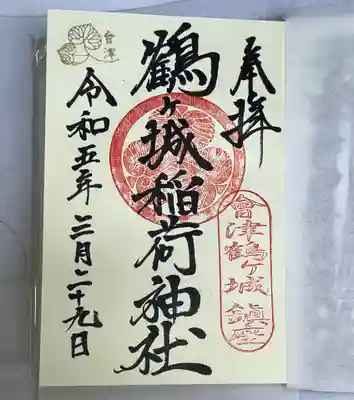 奉拝
會津鶴ヶ城鎮座
鶴ヶ城稲荷神社
令和五年三月二十九日
會津